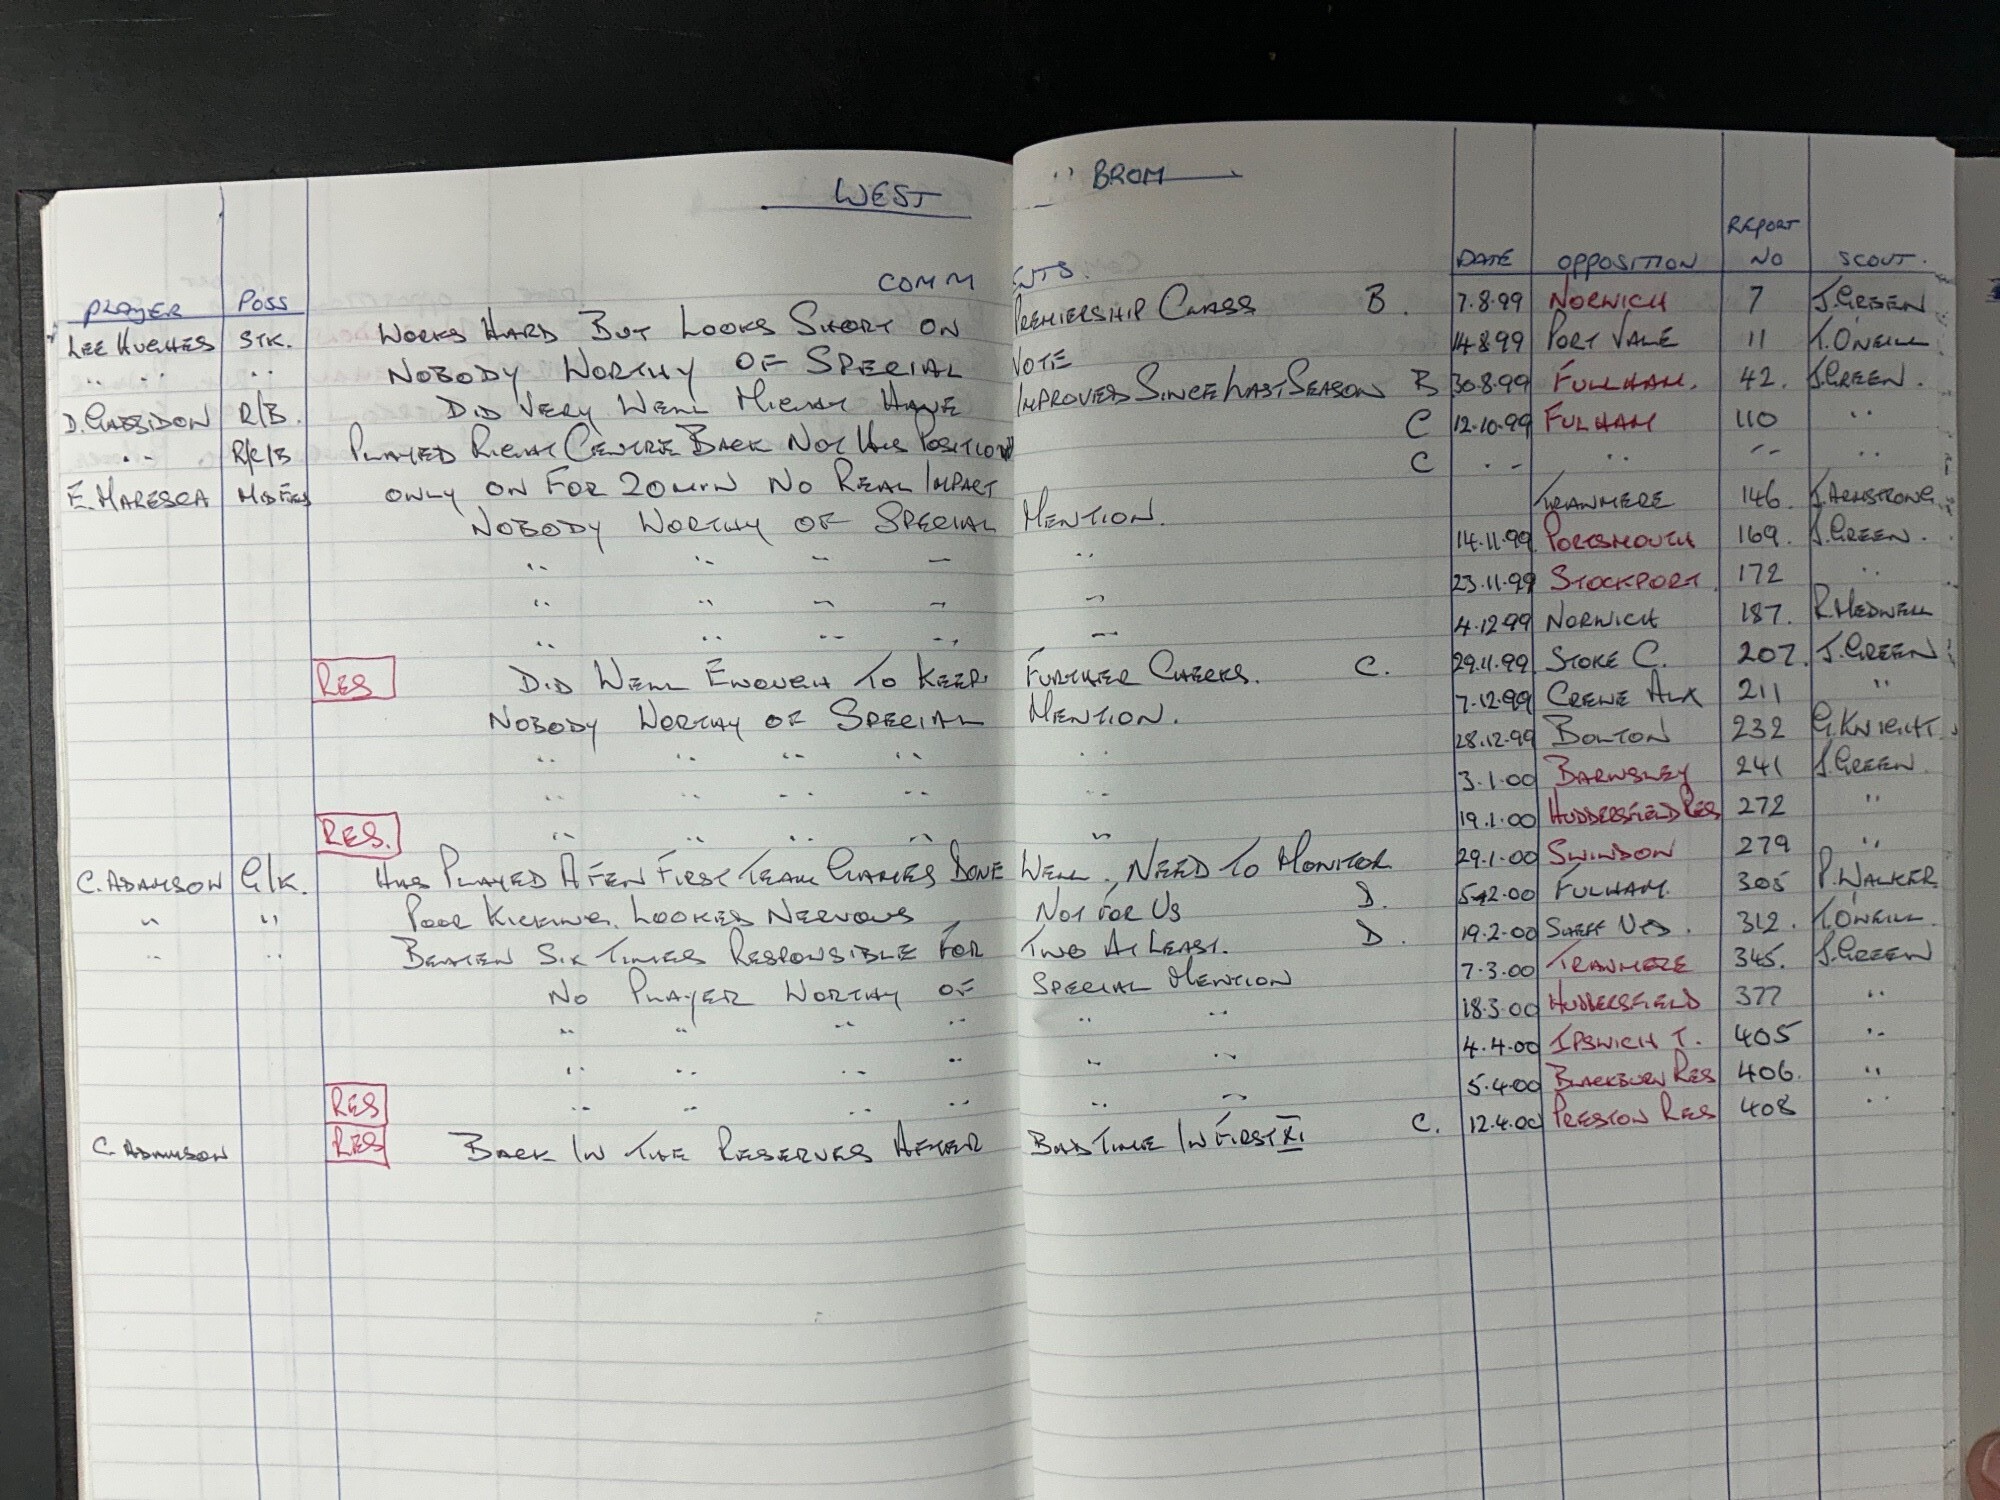 WEST BROM
PLAYER POSS COMMENTS. DATE OPPOSITION REPORT NO SCOUT.
LEE HUGHES STK. WORKS HARD BUT LOOKS SHORT ON PREMIERSHIP CLASS B. 7.8.99 NORWICH 7 J.GREEN
" " " NOBODY WORTHY OF SPECIAL NOTE 14.8.99 PORT VALE 11 T.O'NEILL
D.GABBIDON R/B. DID VERY WELL MIGHT HAVE IMPROVED SINCE LAST SEASON B 30.8.99 FULLHAM. 42. J.GREEN.
" " R/C/B PLAYED RIGHT CENTRE BACK NOT HIS POSITION C 12.10.99 FULHAM 110 "
E.MARESCA MIDFIELD ONLY ON FOR 20MIN NO REAL IMPACT C " " " " "
NOBODY WORTHY OF SPECIAL MENTION. TRANMERE 146. J.ARMSTRONG.
" " " " " 14.11.99 PORTSMOUTH 169. J.GREEN.
" " " " " 23.11.99 STOCKPORT. 172 "
" " " " " 4.12.99 NORWICH 187. R.MEDWELL
RES DID WELL ENOUGH TO KEEP FURTHER CHECKS. C. 29.11.99 STOKE C. 207. J.GREEN
NOBODY WORTHY OF SPECIAL MENTION. 7.12.99 CREWE ALX 211 "
" " " " " 28.12.99 BOLTON 232 G.KNIGHT
" " " " " 3.1.00 BARNSLEY 241 J.GREEN
RES. " " " " " 19.1.00 HUDDERSFIELD RES 272 "
C.ADAMSON G/K. HAS PLAYED A FEW FIRST TEAM GAMES DONE WELL. NEED TO MONITOR 29.1.00 SWINDON 279 "
" " POOR KICKING. LOOKED NERVOUS NOT FOR US D. 5.2.00 FULHAM. 305 P.WALKER
" " BEATEN SIX TIMES RESPONSIBLE FOR TWO AT LEAST. D. 19.2.00 SHEFF UTD. 312. T.O'NEILL.
NO PLAYER WORTHY OF SPECIAL MENTION 7.3.00 TRANMERE 345. J.GREEN
" " " " " " 18.3.00 HUDDERSFIELD 377 "
" " " " " 4.4.00 IPSWICH T. 405 "
RES " " " " " " 5.4.00 BLACKBURN RES 406. "
C. ADAMSON RES BACK IN THE RESERVES AFTER BAD TIME IN FIRST XI C. 12.4.00 PRESTON RES 408 "